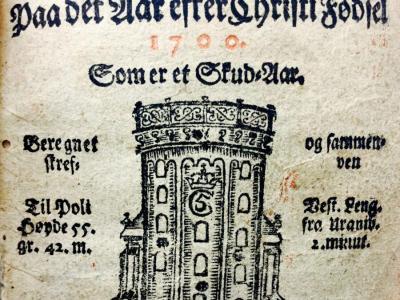 Paa det Aar efter Christi Fødsel
1700.
Som er et Skud-Aar.
Beregnet og sammen-
skref- ven
Til Poli Vest. Leng.
Høyde 55. fra Uranib.
gr. 42. m. 2. minut.